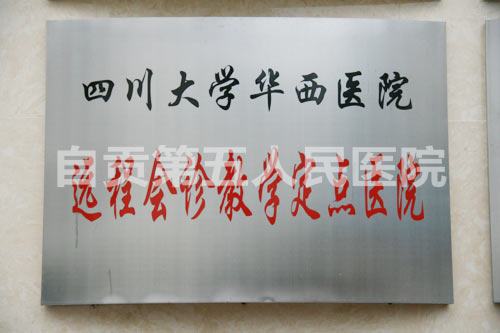 四川大学华西医院
自贡第五人民医院
远程会诊教学定点医院